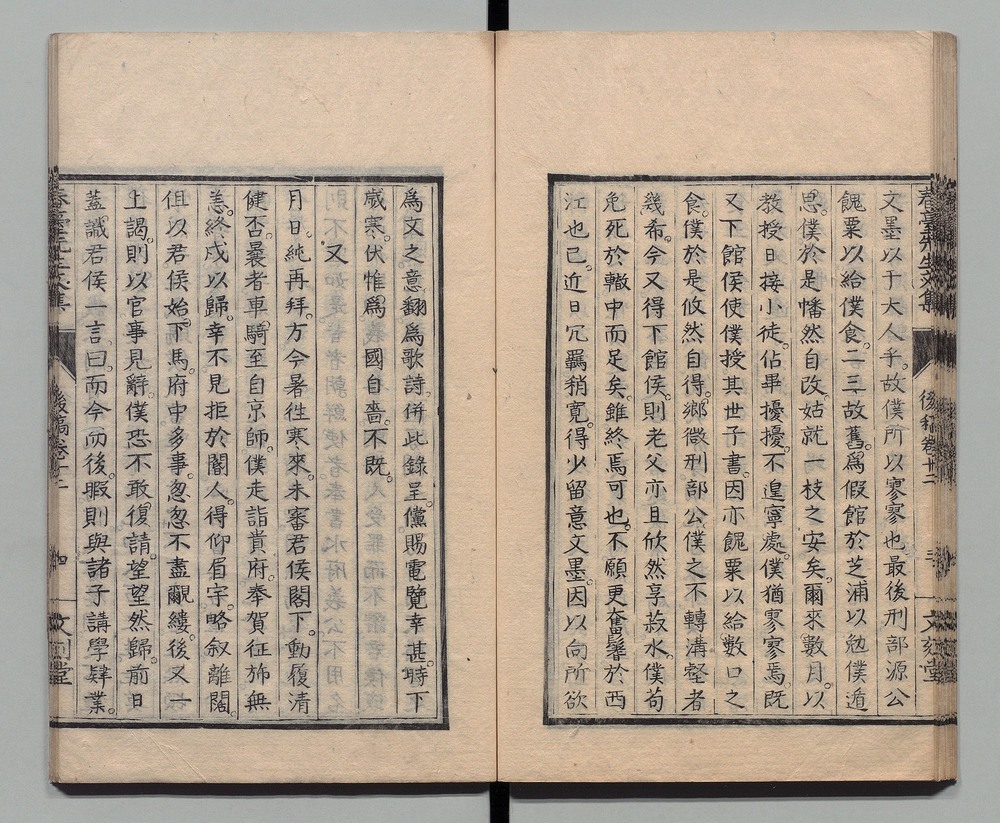 文墨以于大人乎。故僕所以寥寥也最後刑部源公
餽粟以給僕食。二三故舊。爲假館於芝浦以勉僕遁
思。僕於是幡然自改姑就一枝之安矣。爾來數月。以
教授日接小徒。佔畢擾擾。不遑寧處。僕猶寥寥焉既
又下館侯使僕授其世子書。因亦餽粟以給數口之
食。僕於是攸然自得。鄉微刑部公僕之不轉溝壑者
幾希。今又得下館侯。則老父亦且欣然享菽水。僕苟
免死於轍中而足矣。雖終焉可也。不願更奮鬐於西
江也已。近日冗羈稍寬。得少留意文墨。因以向所欲
後稿卷十二
三
文刻堂
爲文之意。翻爲歌詩。併此錄呈。儻賜電覽幸甚。時下
歲寒。伏惟爲國自嗇。不既。
又
月日。純再拜。方今暑徃寒來。未審君侯閣下。動履清
健否。曩者車騎至自京師。僕走詣貴府。奉賀征旆無
恙。終戍以歸。幸不見拒於閽人。得仰眉宇。略叙離闊。
但以君侯始下馬。府中多事。怱怱不盡覼縷。後又一
上謁則以官事見辭。僕恐不敢復請。望望然歸。前日
蓋識君侯一言。曰。而今而後。暇則與諸子講學肄業。
後稿卷十二
四
文刻堂